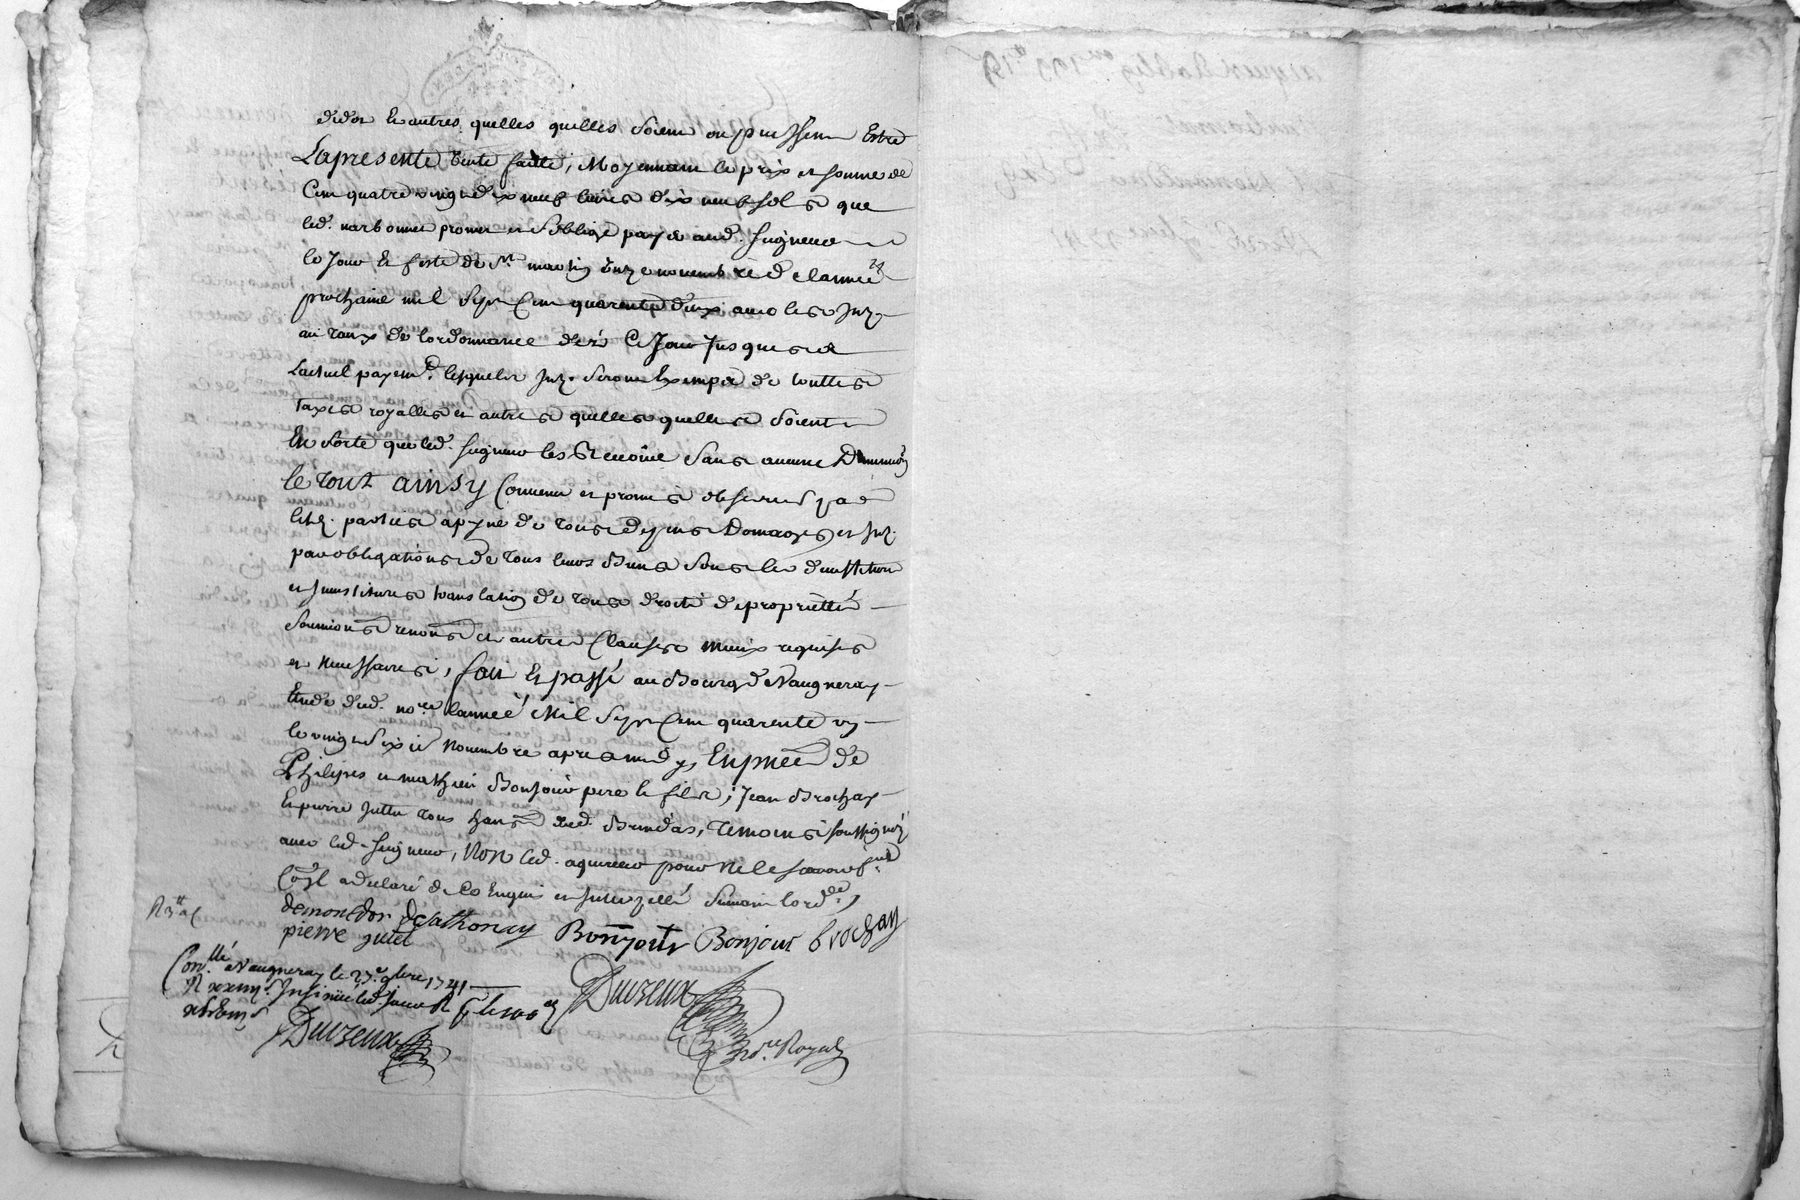 d'or et autres quelles quelles soient ou puissent Estre
Lapresente Vente faitte, Moyennant le prix et somme de
Cent quatre vingt dix neuf livres dix neuf sols que
led. narbonnet promet et soblige payer aud. seigneur
le Jour et feste de St. martin onze novembre de lannée
prochaine mil sept Cent quarente deux avec les Jnt.
au taux de lordonnance dez Ce Jour Jusques a
Lactuel payemt. lesquels Jnt. seront Exempts de touttes
taxes royalles et autres quelles quelles soient
En sorte que led. seigneur les recoive sans aucune Diminuõn
le tout ainsy Convenu et promis observer par
lesd. parties a peyne de tous depens Domages et Jnt.
par obligations de tous leurs Biens sous les
et Jnvestitures translation de tous droits de proprietté
soumions renons et autres Clauses mieux requises
et necessaires, fait et passé au Bourg de Vaugneray
Etude dud. nore. lannéé Mil sept Cent quarente un
le vingt six Novembre apres midy, En pñce de
Philipes et mathieu Bonjour pere et fils, Jean Brochay
Et pierre Juttet tous dud. Brindas, temoins soussignez
avec led. seigneur, Non led. aquereur pour ne le scavoir
a declaré de ce Enquis et Jnterpellé suivant lordce.
demondor de sathonay Bonjour Bonjour brochay
pierre jutet
R 3tt
Conllé. a Vaugneray le 27e. 9bre 1741
Duvzeux
nore. Royal
Duvzeux